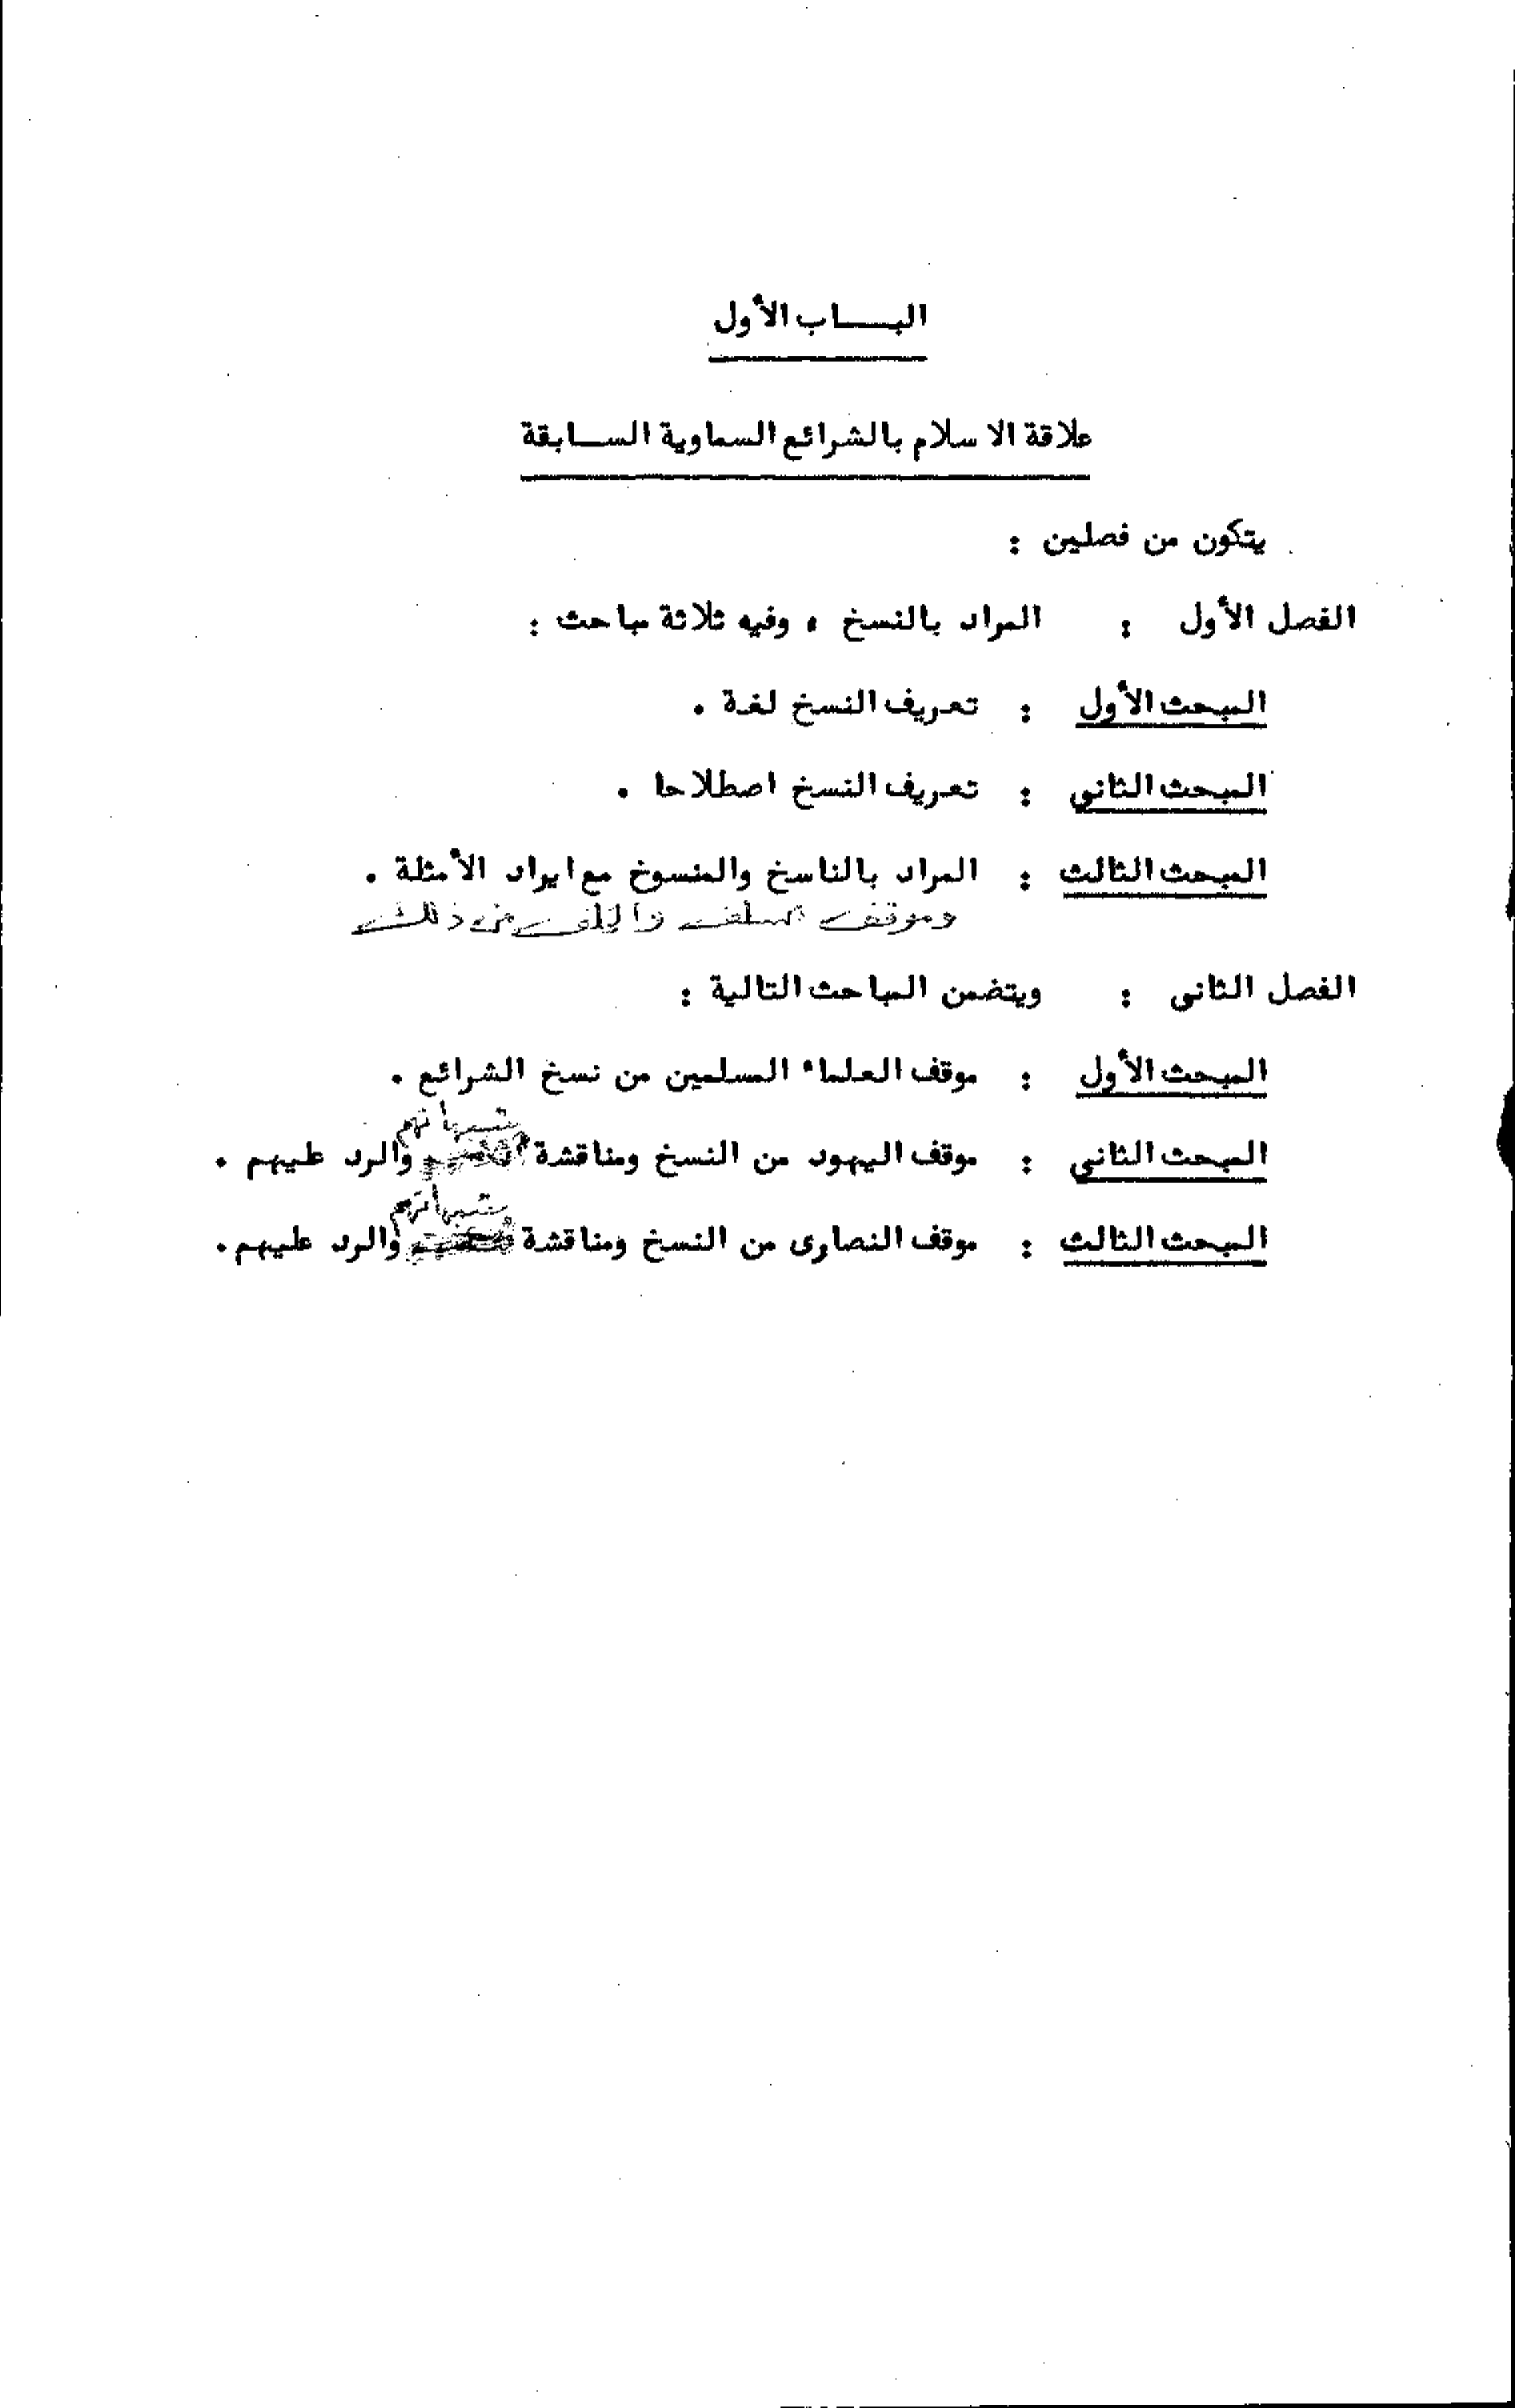 البـــاب الأول
علاقة الاسلام بالشرائع السماوية الســابقة
يتكون من فصلين :
الفصل الأول : المراد بالنسخ ، وفيه ثلاثة مباحث :
المبحث الأول : تعريف النسخ لغة .
المبحث الثانى : تعريف النسخ اصطلاحا .
المبحث الثالث : المراد بالناسخ والمنسوخ مع ايراد الأمثلة .
وموقف السلف والخلف من ذلك
الفصل الثانى : ويتضمن المباحث التالية :
المبحث الأول : موقف العلماء المسلمين من نسخ الشرائع .
شبهاتهم
المبحث الثانى : موقف اليهود من النسخ ومناقشة والرد عليهم .
شبهاتهم
المبحث الثالث : موقف النصارى من النسخ ومناقشة والرد عليهم .